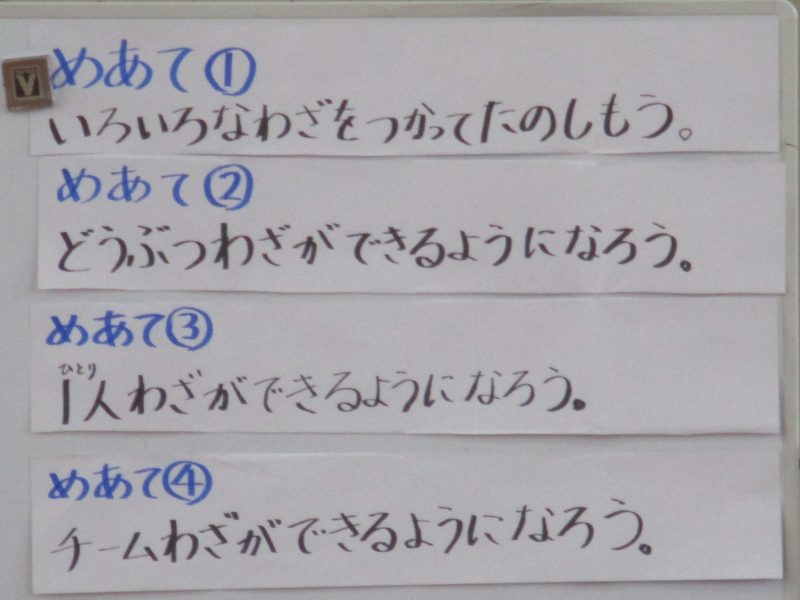 めあて①
いろいろなわざをつかってたのしもう。
めあて②
どうぶつわざができるようになろう。
めあて③
ひとり
1人わざができるようになろう。
めあて④
チームわざができるようになろう。